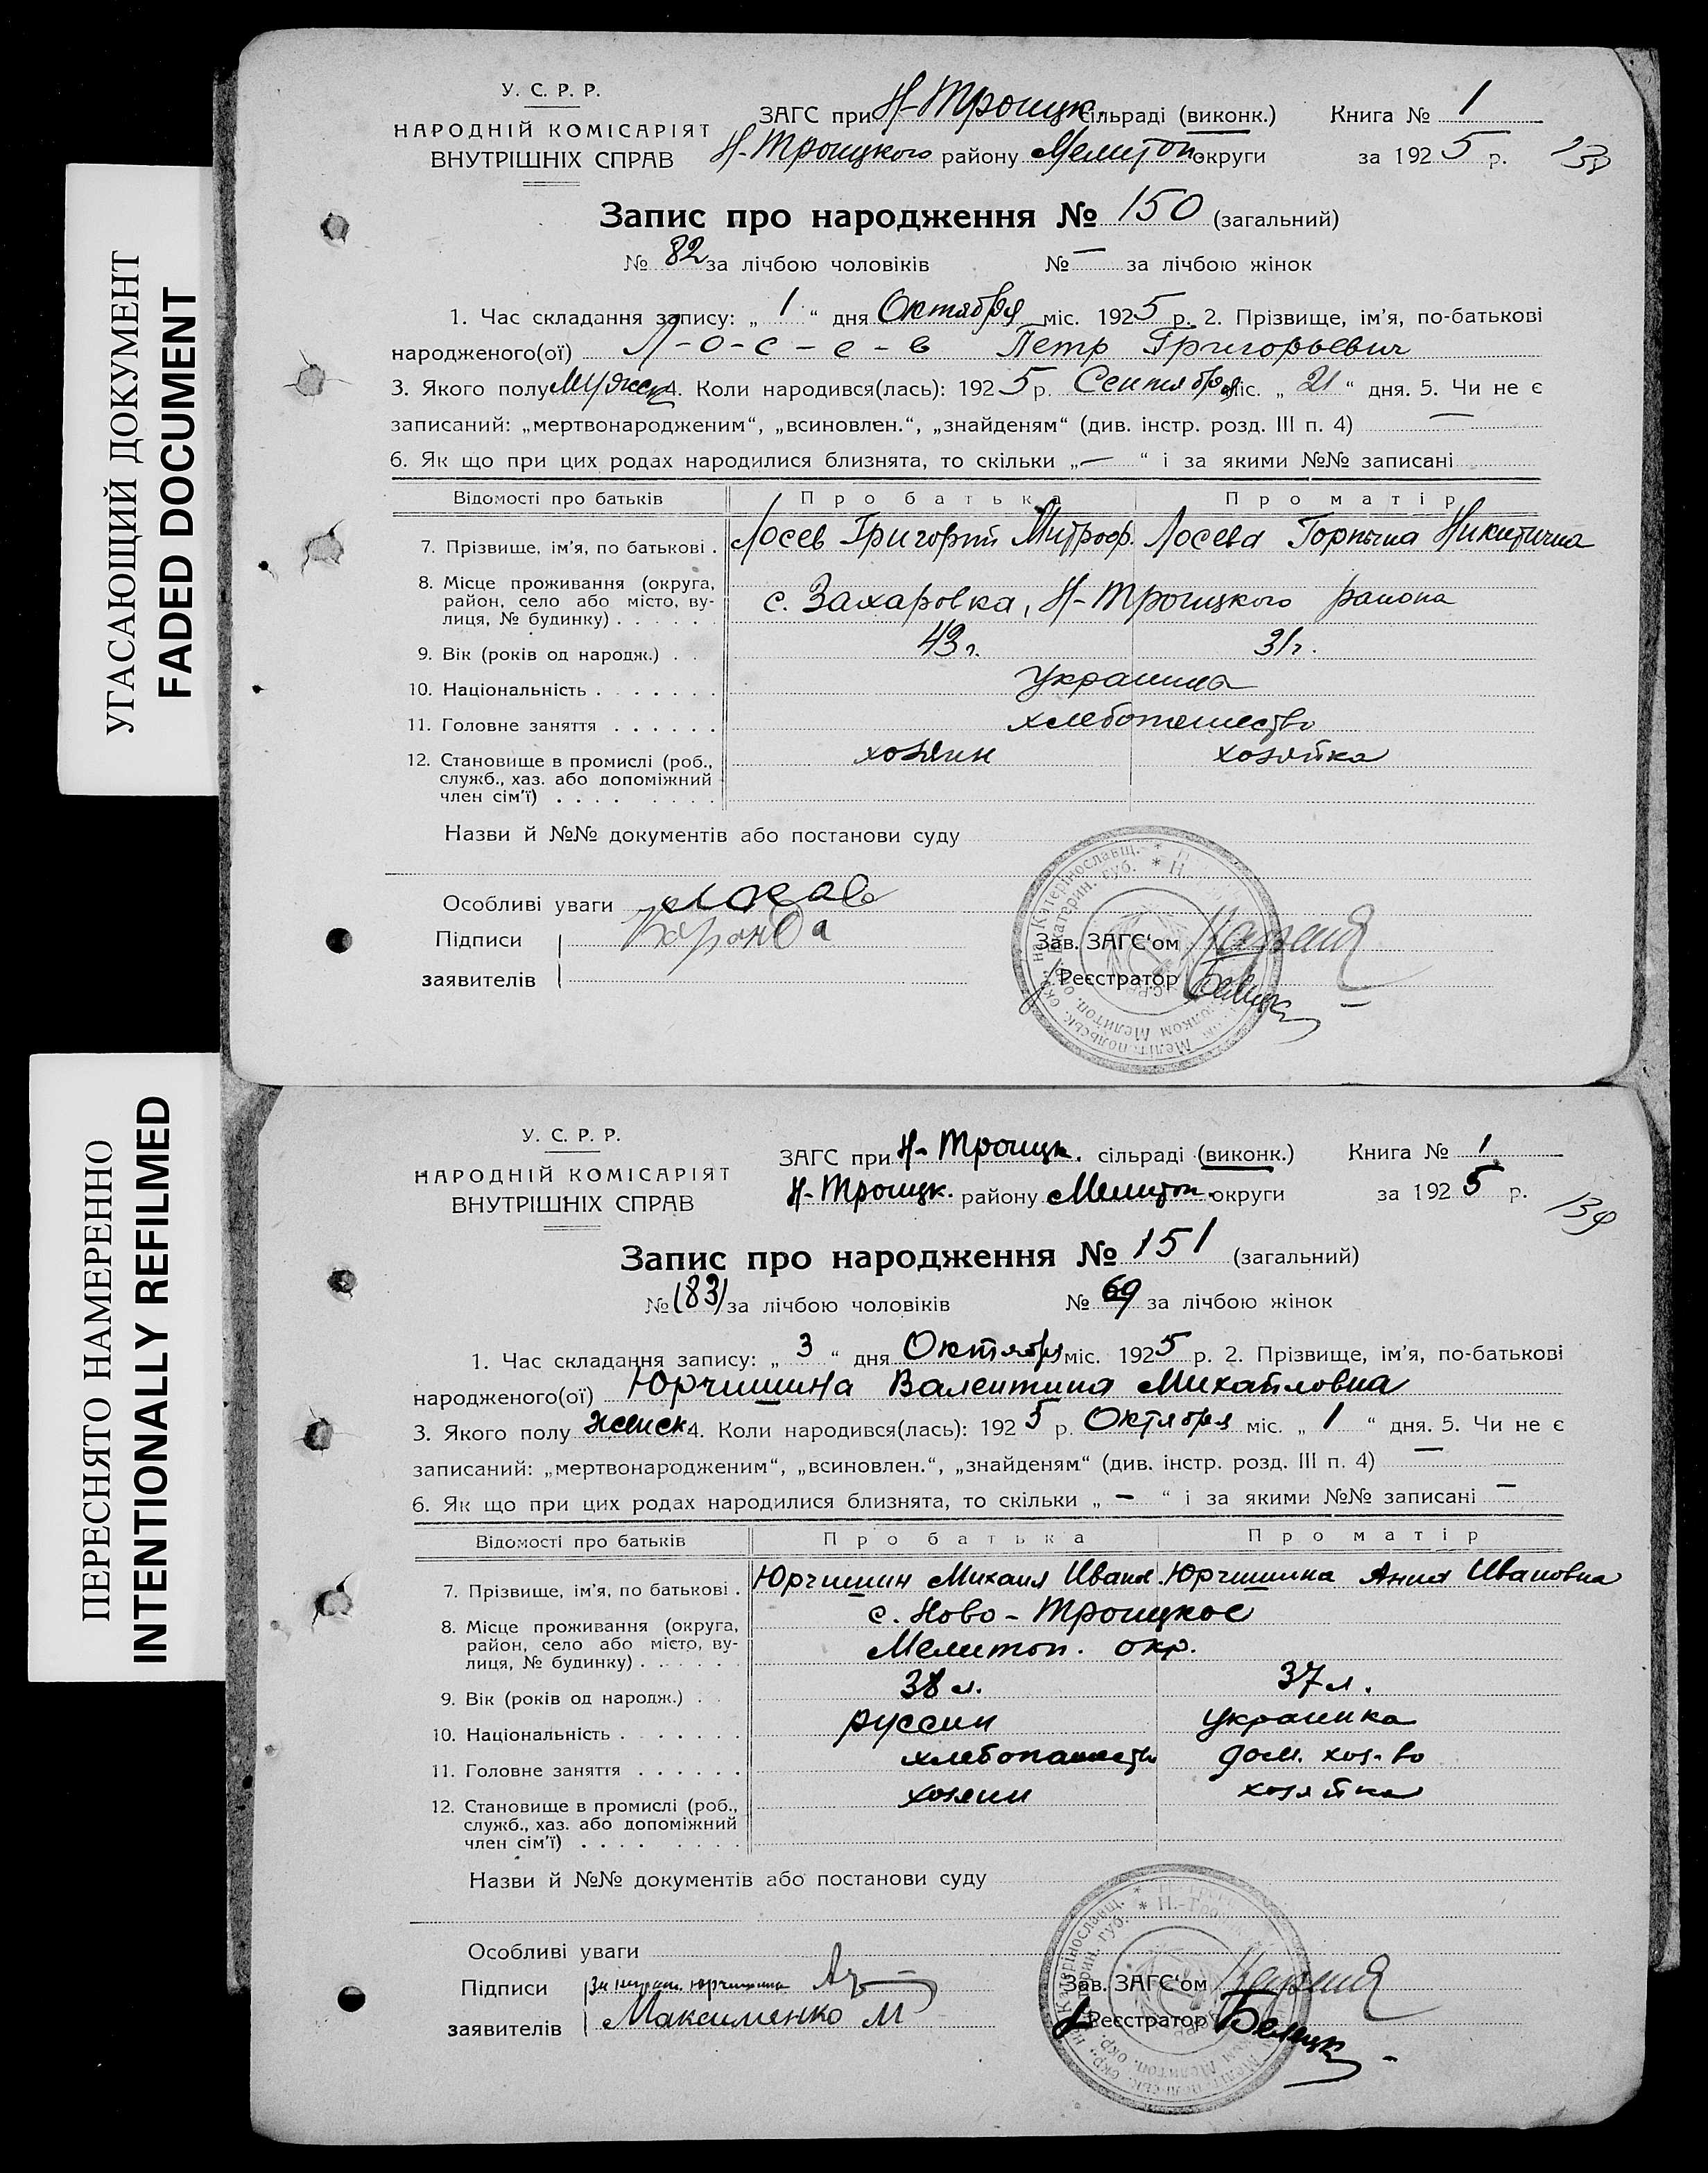 УГАСАЮЩИЙ ДОКУМЕНТ
FADED DOCUMENT
ПЕРЕСНЯТО НАМЕРЕННО
INTENTIONALLY REFILMED
У. С. Р. Р.
НАРОДНІЙ КОМІСАРІЯТ
ВНУТРІШНІХ СПРАВ
ЗАГС при Н-Троицк. сільраді (виконк.) Книга № 1
Н-Троицкого району Мелитоп. округи за 1925 р.
Запис про народження № 150 (загальний)
№ 82 за лічбою чоловіків № — за лічбою жінок
1. Час складання запису: „ 1 “ дня Октября міс. 1925 р. 2. Прізвище, ім’я, по-батькові
народженого(ої) Л-о-с-е-в Петр Григорьевич
3. Якого полу Мужск 4. Коли народився(лась): 1925 р. Сентября міс. „ 21 “ дня. 5. Чи не є
записаний: „мертвонародженим“, „всиновлен.“, „знайденям“ (див. інстр. розд. III п. 4) —
6. Як що при цих родах народилися близнята, то скільки „ — “ і за якими №№ записані
Відомості про батьків Про батька Про матір
7. Прізвище, ім’я, по батькові . Лосев Григорий Митроф. Лосева Горпина Никитична
8. Місце проживання (округа,
район, село або місто, ву-
лиця, № будинку) . . . . . . с. Захаровка, Н-Троицкого района
9. Вік (років од народж.) . . 43 г. 31 г.
10. Національність . . . . . . .
11. Головне заняття . . . . . .
12. Становище в промислі (роб.,
служб., хаз. або допоміжний
член сім’ї) . . . . . . . . хозяин хозяйка
Назви й №№ документів або постанови суду
Особливі уваги
Підписи
заявителів
Зав. ЗАГС‘ом
Реєстратор
У. С. Р. Р.
НАРОДНІЙ КОМІСАРІЯТ
ВНУТРІШНІХ СПРАВ
ЗАГС при Н-Троицк. сільраді (виконк.) Книга № 1
Н-Троицк. району Мелитоп. округи за 1925 р.
139
Запис про народження № 151 (загальний)
№ (83) за лічбою чоловіків № 69 за лічбою жінок
1. Час складання запису: „ 3 “ дня Октября міс. 1925 р. 2. Прізвище, ім’я, по-батькові
народженого(ої) Юрчишина Валентина Михайловна
3. Якого полу женск 4. Коли народився(лась): 1925 р. Октября міс. „ 1 “ дня. 5. Чи не є
записаний: „мертвонародженим“, „всиновлен.“, „знайденям“ (див. інстр. розд. III п. 4) —
6. Як що при цих родах народилися близнята, то скільки „ — “ і за якими №№ записані —
Відомості про батьків Про батька Про матір
7. Прізвище, ім’я, по батькові . Юрчишин Михаил Иванов. Юрчишина Анна Ивановна
8. Місце проживання (округа,
район, село або місто, ву-
лиця, № будинку) . . . . . . с. Ново-Троицкое
Мелитоп. окр.
9. Вік (років од народж.) . . 38 л. 37 л.
10. Національність . . . . . . . руссин украинка
11. Головне заняття . . . . . . хлебопашество дом. хоз-во
12. Становище в промислі (роб.,
служб., хаз. або допоміжний
член сім’ї) . . . . . . . . хозяин хозяйка
Назви й №№ документів або постанови суду
Особливі уваги
Підписи
заявителів Максименко М
Зав. ЗАГС‘ом
Реєстратор